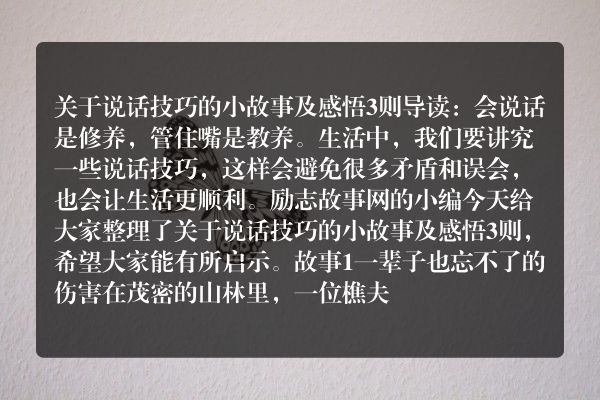 关于说话技巧的小故事及感悟3则导读：会说话
是修养，管住嘴是教养。生活中，我们要讲究
一些说话技巧，这样会避免很多矛盾和误会，
也会让生活更顺利。励志故事网的小编今天给
大家整理了关于说话技巧的小故事及感悟3则，
希望大家能有所启示。故事1一辈子也忘不了的
伤害在茂密的山林里，一位樵夫